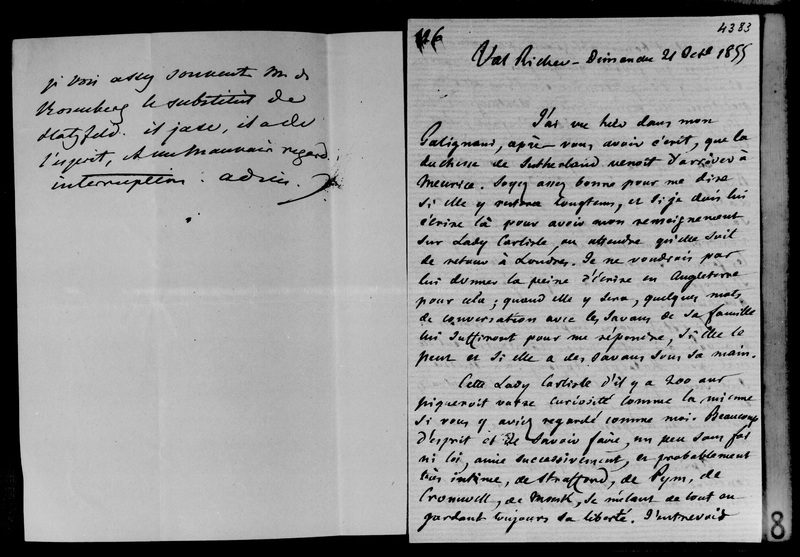 je vois assez souvent M. de
Rosenberg le substitut de
Hatzfeld. il jase, il a de
l'esprit, et un mauvais regard.
interruption. adieu.
4383
126
Val Richer - Dimanche 21 Octb 1855
J'ai vu hier dans mon
Galignani, après vous avoir écrit, que la
duchesse de Sutherland venoit d'arriver à
Meurice. Soyez assez bonne pour me dire
si elle y restera longtems, et si je dois lui
écrire là pour avoir mon renseignement
sur Lady Carlisle, ou attendre qu'elle soit
de retour à Londres. Je ne voudrois pas
lui donner la peine d'écrire en Angleterre
pour cela; quand elle y sera, quelques mots
de conversation avec les savans de sa famille
lui suffiront pour me répondre, si elle le
peut et si elle a des savans sous sa main.
Cette Lady Carlisle d'il y a 200 ans
piqueroit votre curiosité comme la mienne
si vous y aviez regardé comme moi. Beaucoup
d'esprit et de savoir faire, un peu sans foi
ni loi, amie successivement, et probablement
très intime, de Strafford, de Pym, de
Cromwell, de Monk, se mêlant de tout en
gardant toujours sa liberté. J'entrevois
8